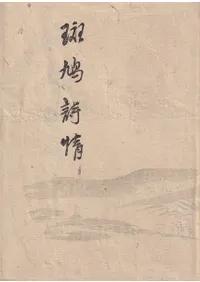 斑鳩詩情